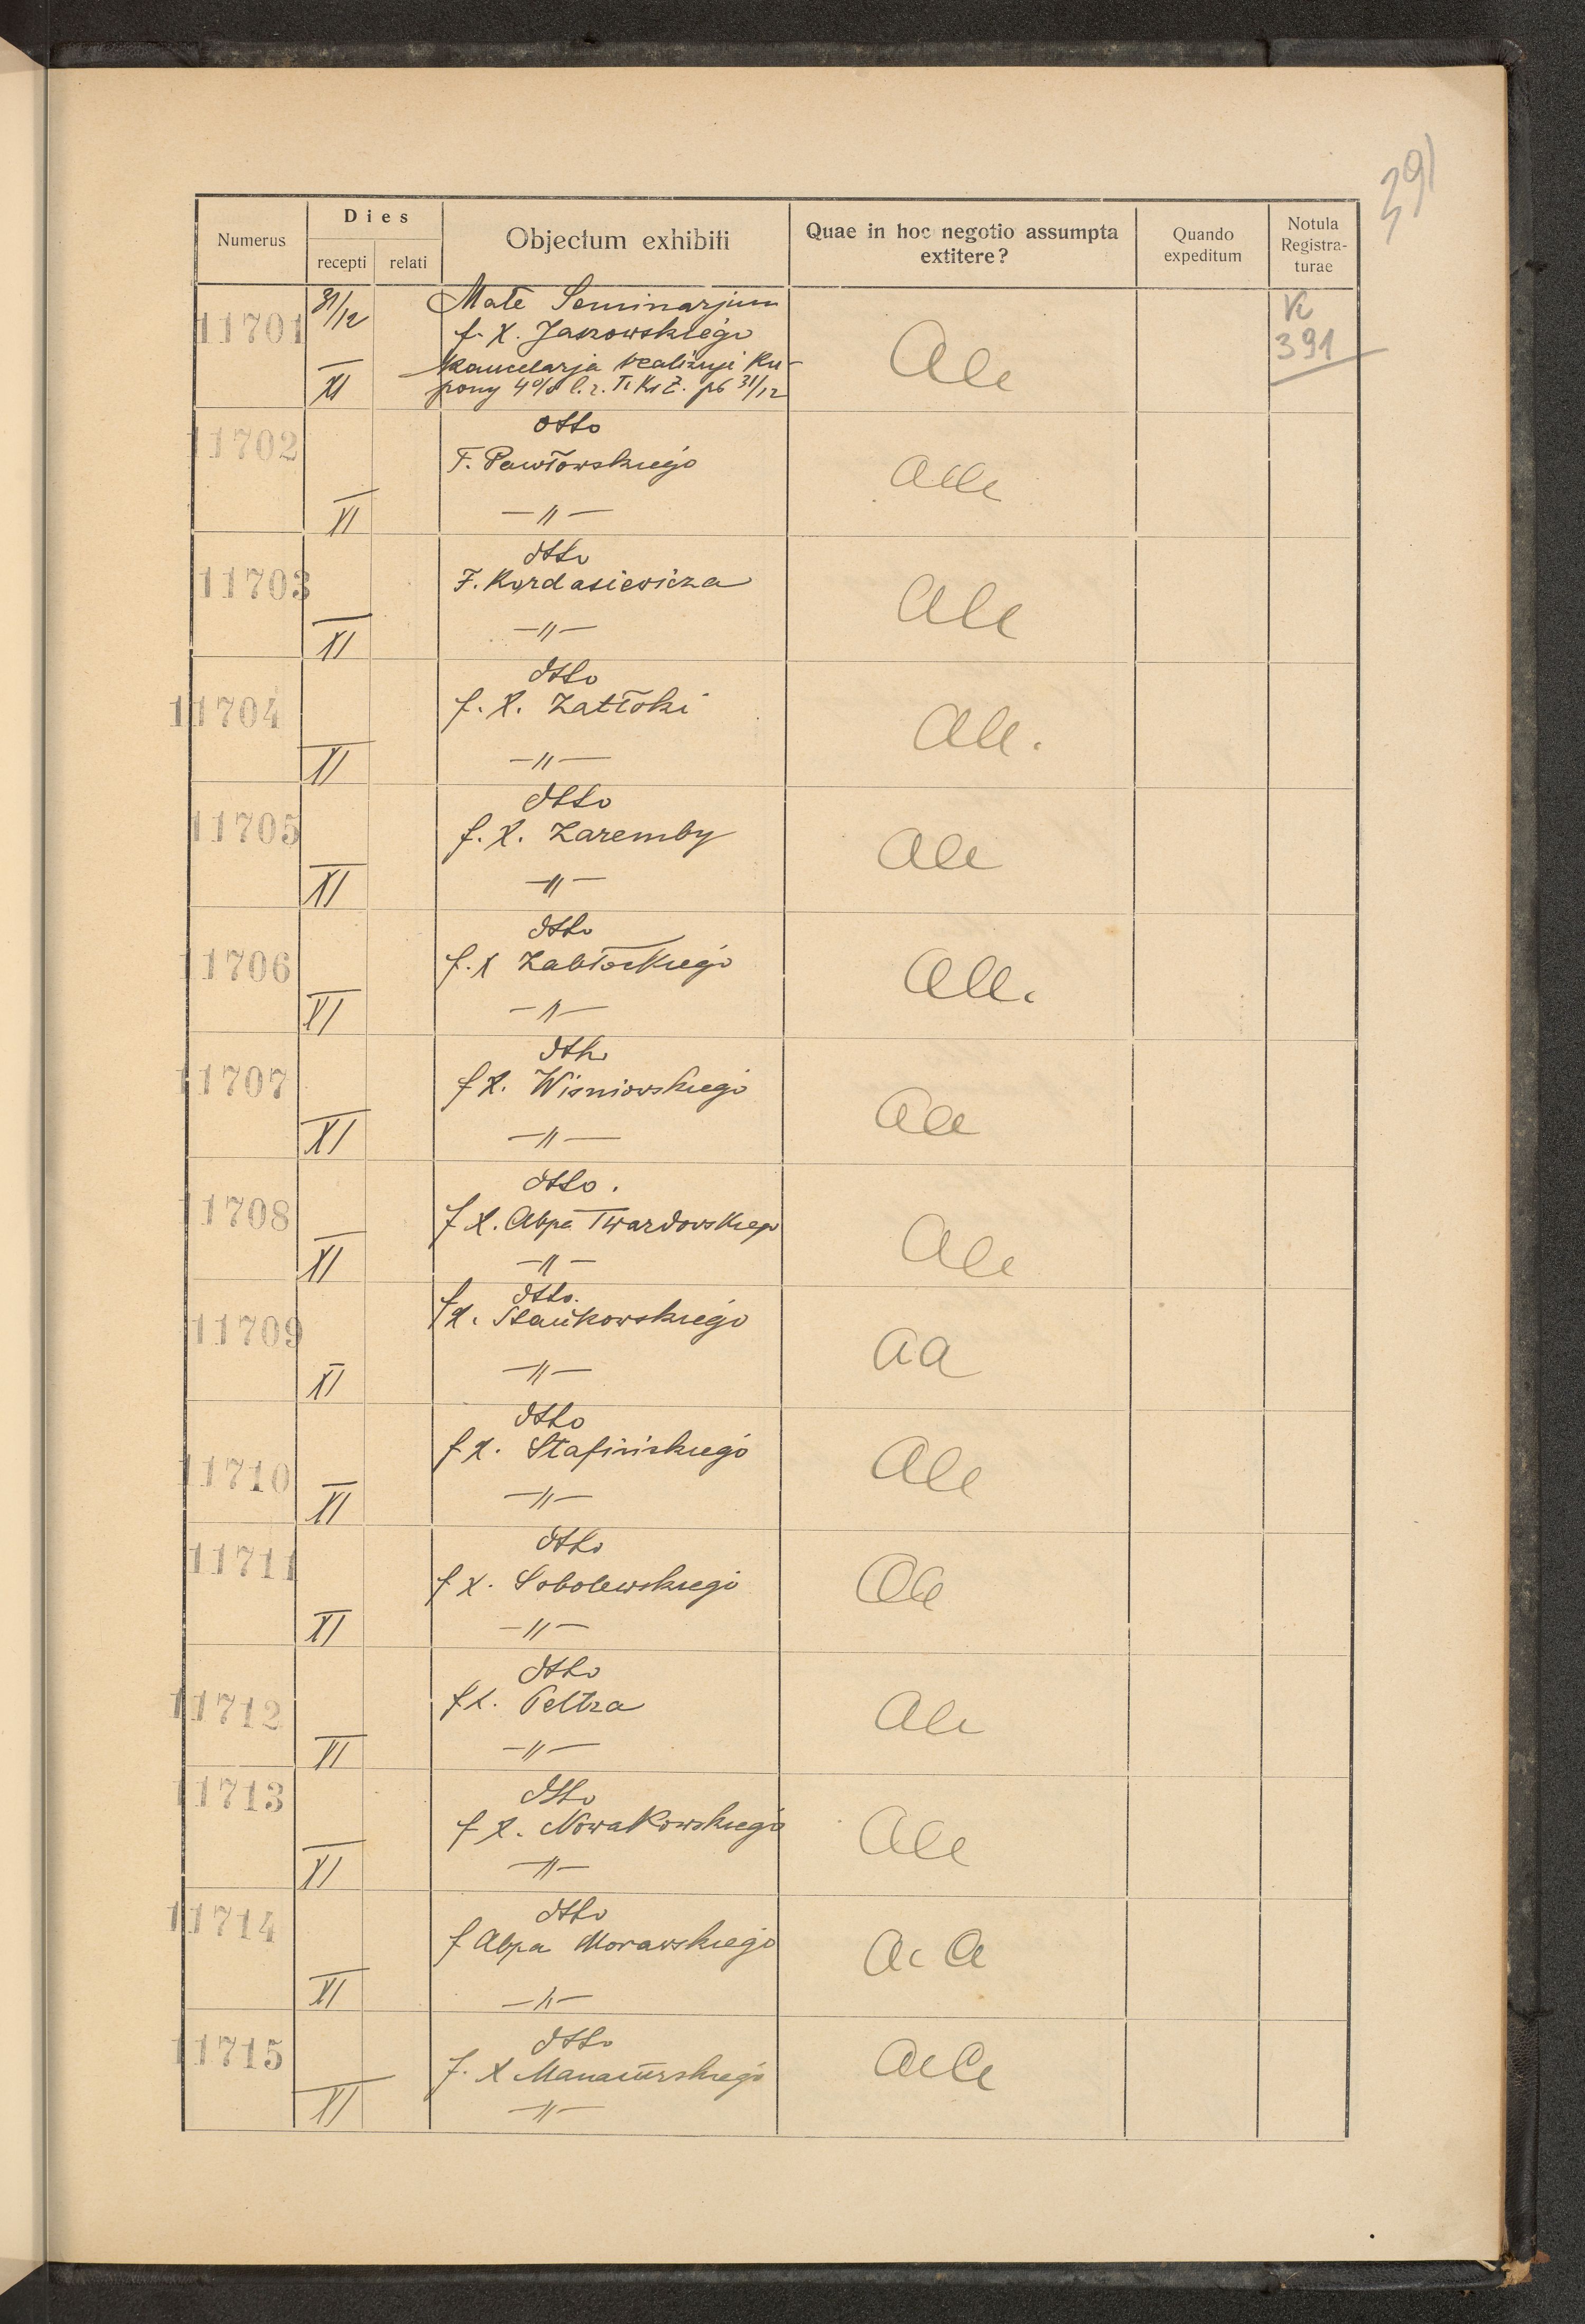 291
Numerus
Dies
recepti
relati
Objectum exhibiti
Quae in hoc negotio assumpta
extitere?
Quando
expeditum
Notula
Registra-
turae
11701
31/12
XI
Małe Seminarjum
f. X. Jaszowskiego
Kancelarja realizuje Ku-
pony 4% l. z. T. Kr. Z. 31/12
K
391
11702
XI
dtto
F. Pawłowskiego
—〃—
11703
XI
dtto
F. Kordasiewicza
—〃—
11704
XI
dtto
f. X. Zatłoki
—〃—
11705
XI
dtto
f. X. Zaremby
—〃—
11706
XI
dtto
f. X Zabłockiego
—〃—
11707
XI
dtto
f X. Wisniowskiego
—〃—
11708
XI
dtto.
f X. Abpa Twardowskiego
—〃—
11709
XI
dtto.
f X. Stańkowskiego
—〃—
aa
11710
XI
dtto
f X. Stafińskiego
—〃—
11711
XI
dtto
f X. Sobolewskiego
—〃—
11712
XI
dtto
f X. Peltza
—〃—
11713
XI
dtto
f X. Nowakowskiego
—〃—
11714
XI
dtto
f Abpa Morawskiego
—〃—
11715
XI
dtto
f. X
—〃—